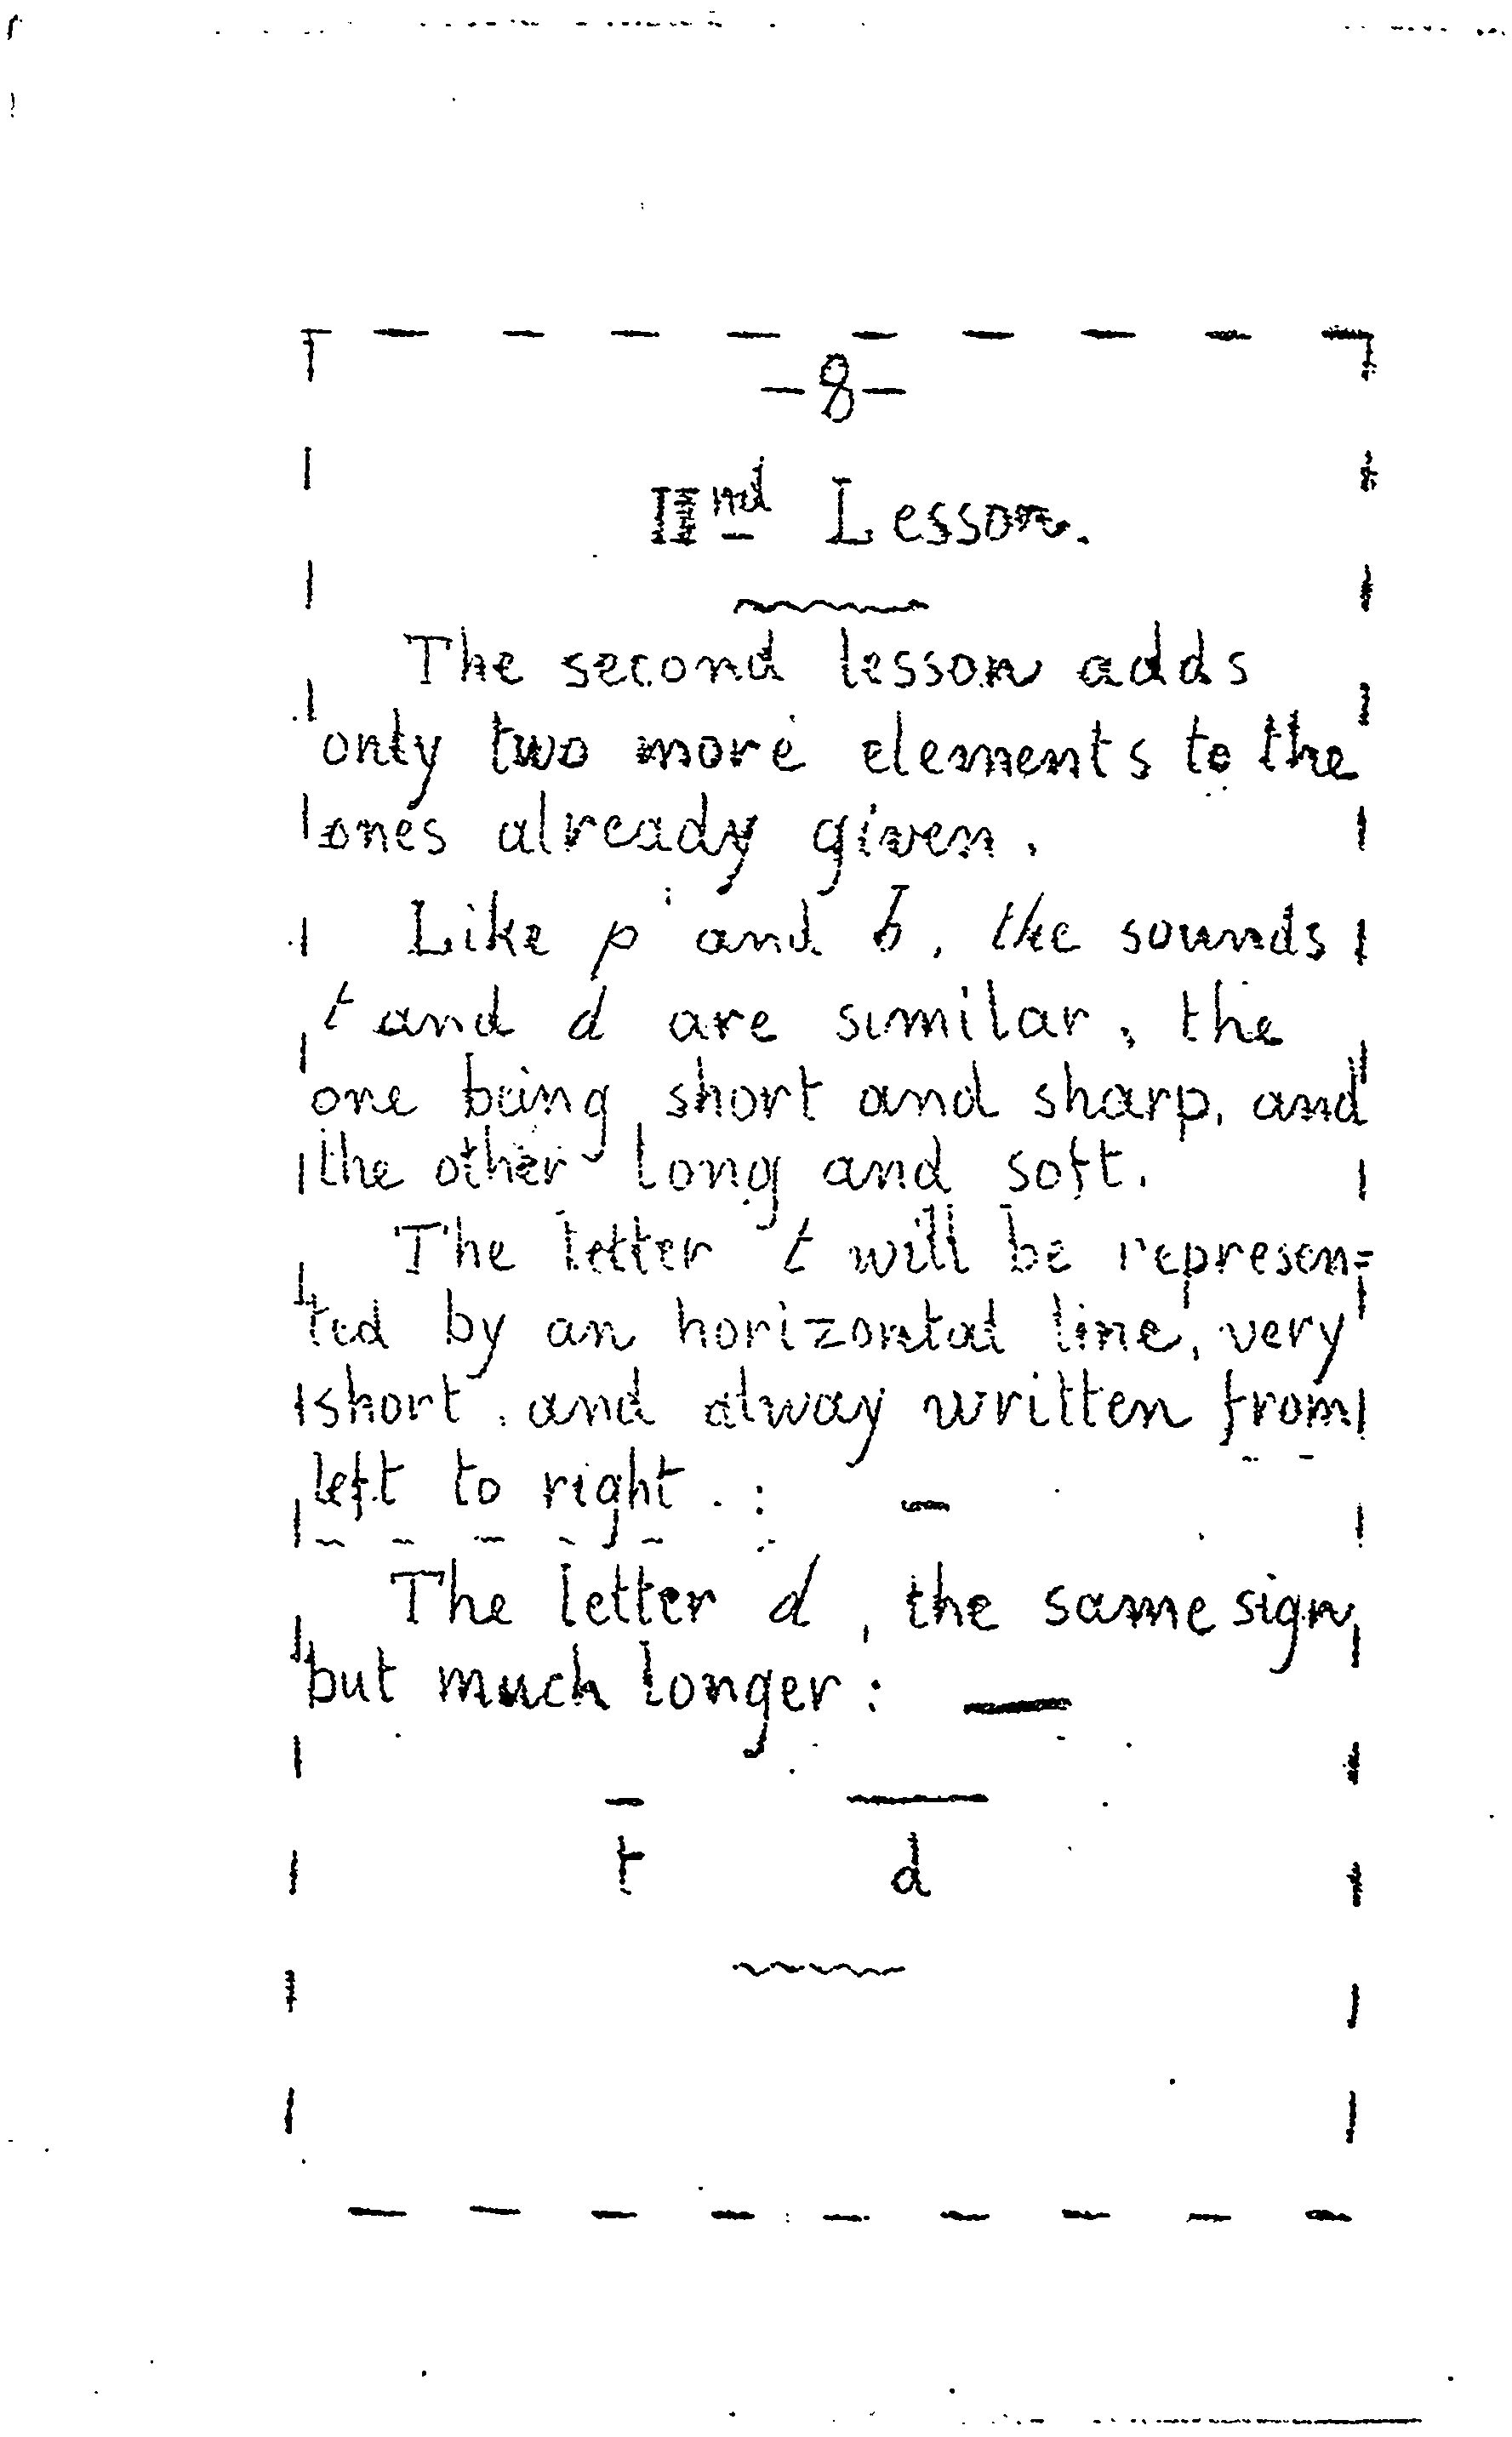 -8-
IInd Lesson.
The second lesson adds
only two more elements to the
ones already given.
Like p and b, the sounds
t and d are similar, the
one being short and sharp, and
the other long and soft.
The letter t will be represen=
ted by an horizontal line, very
short, and alway written from
left to right. : —
The letter d, the same sign,
but much longer: —
t d